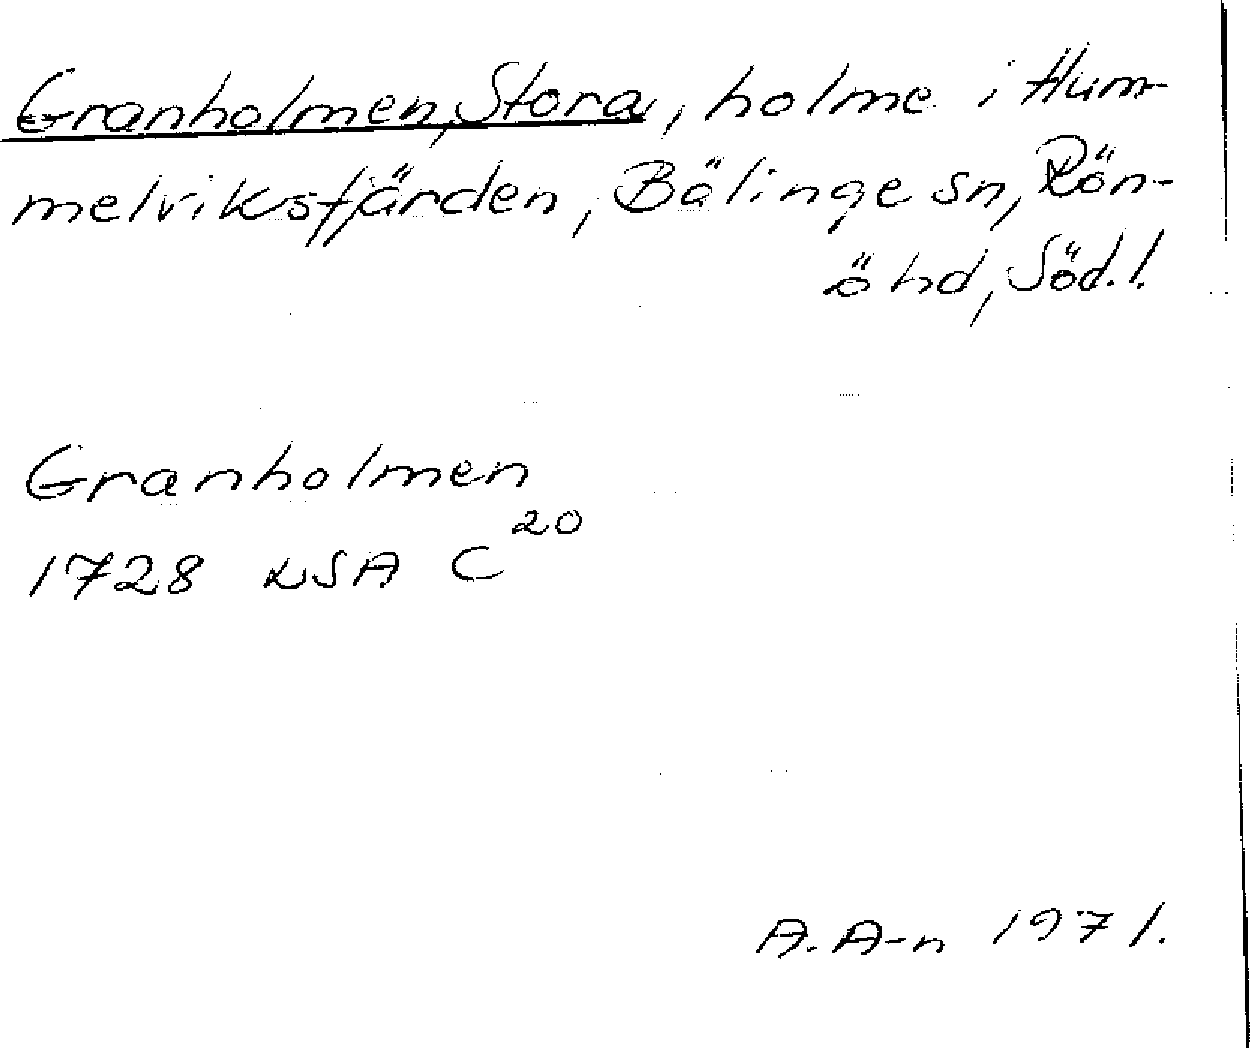 Granholmen, Stora, holme i Hum-
melviksfjärden, Bälinge sn, Rön-
ö hd, Söd.l.
Granholmen
1728 LSA C 20
A. A-n 1971.